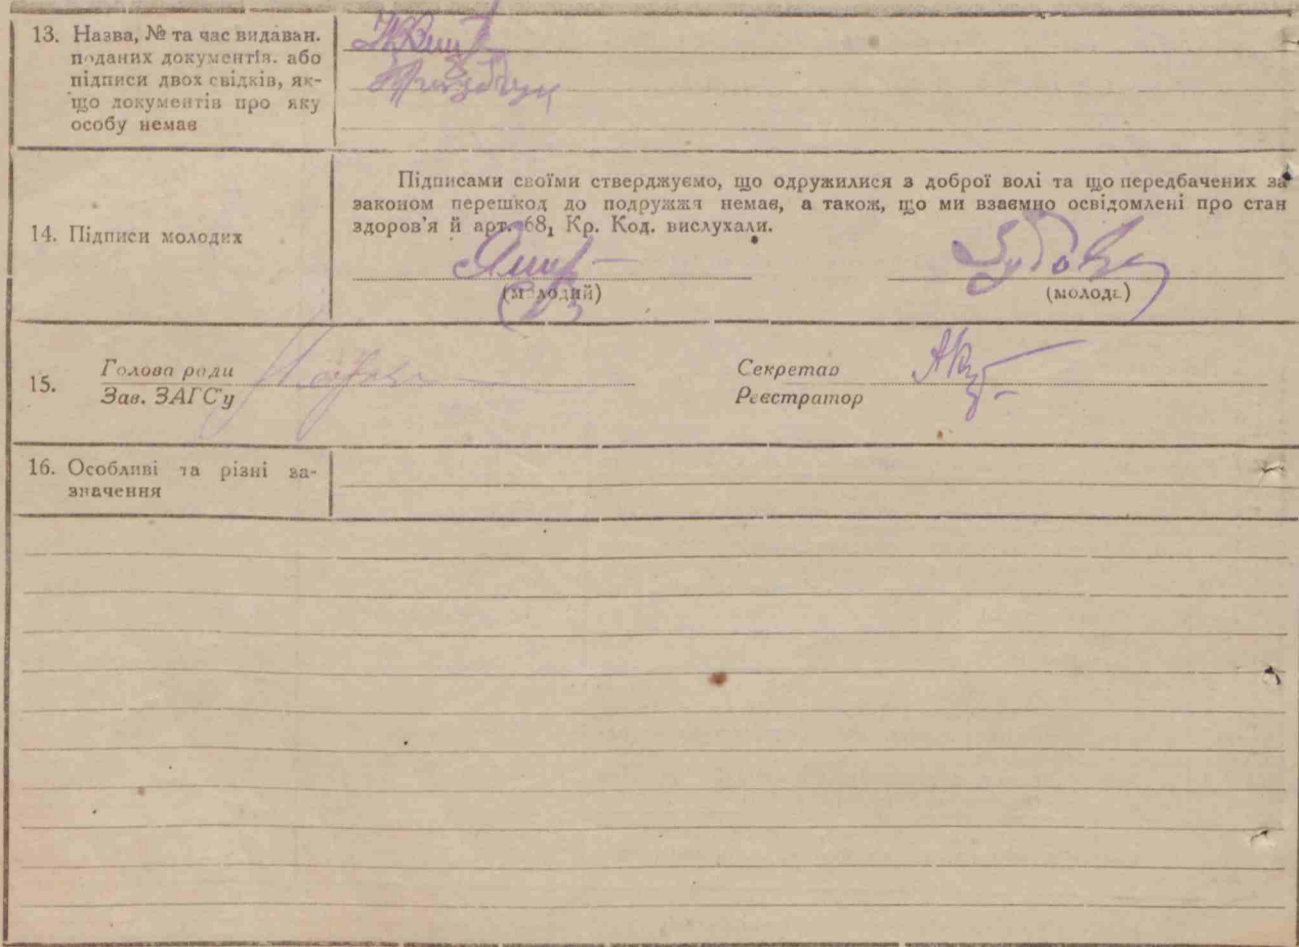 13. Назва, № та час видаван.
поданих документів. або
підписи двох свідків, як-
що документів про яку
особу немає
14. Підписи молодих
Підписами своїми стверджуємо, що одружилися з доброї волі та що передбачених за
законом перешкод до подружжя немає, а також, що ми взаємно освідомлені про стан
здоров'я й арт. 68₁ Кр. Код. вислухали.
(молодий)
(молода)
15.
Голова ради
Зав. ЗАГС'у
Секретар
Реєстратор
16. Особливі та різні за-
значення